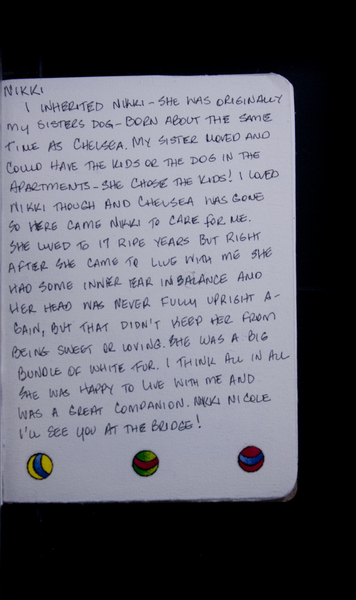 NIKKI
I INHERITED NIKKI - SHE WAS ORIGINALLY
MY SISTERS DOG - BORN ABOUT THE SAME
TIME AS CHELSEA. MY SISTER MOVED AND
COULD HAVE THE KIDS OR THE DOG IN THE
APARTMENTS - SHE CHOSE THE KIDS! I LOVED
NIKKI THOUGH AND CHELSEA WAS GONE
SO HERE CAME NIKKI TO CARE FOR ME.
SHE LIVED TO 17 RIPE YEARS BUT RIGHT
AFTER SHE CAME TO LIVE WITH ME SHE
HAD SOME INNER EAR INBALANCE AND
HER HEAD WAS NEVER FULLY UPRIGHT A-
GAIN, BUT THAT DIDN'T KEEP HER FROM
BEING SWEET OR LOVING. SHE WAS A BIG
BUNDLE OF WHITE FUR. I THINK ALL IN ALL
SHE WAS HAPPY TO LIVE WITH ME AND
WAS A GREAT COMPANION. NIKKI NICOLE
I'LL SEE YOU AT THE BRIDGE!